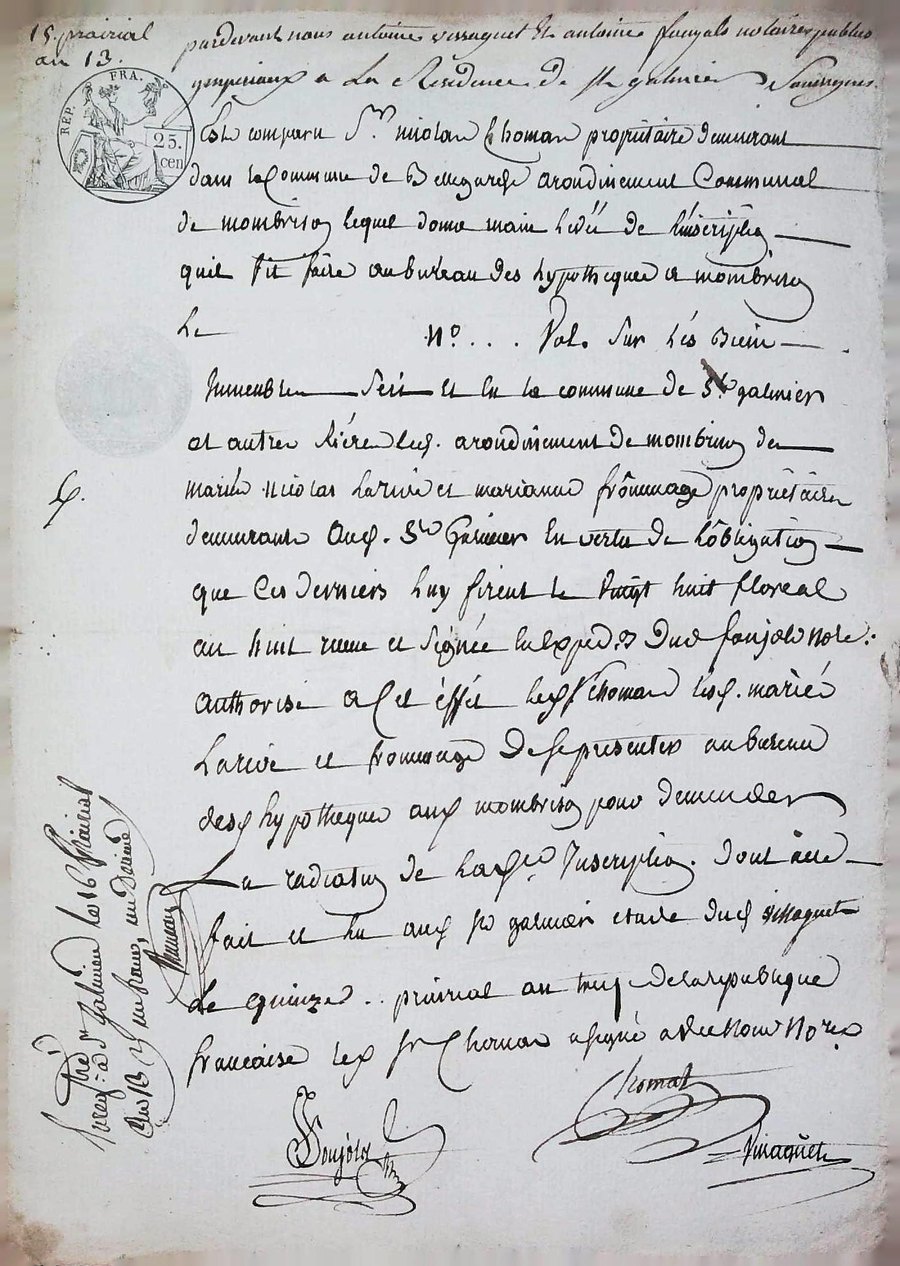 15. prairial
an 13.
REP. FRA.
25.
cen
pardevant nous antoine vissaguet et antoine notaires publics
imperiaux a La Résidence de st galmier Soussignes.
Est comparu Sr. nicolas thomas propriétaire demurant
dans la Commune de Bellegarde arondinement Communal
de mombrison lequel donne main levéé de l'inscription
quil fit faire au bureau des hypotheques a mombrison
Le N°. . . Vol. Sur Lés Biens
Immeubles Séis et en la commune de St. galmier
et autres arondinement de mombrison des
mariés nicolas Larive et marianne frômmage propriétaires
demurants Aud. St Galmier En vertu de Lôbligation
que Ces derniers Luy firent Le Vingt huit floreal
an huit reçue et Signée Dud notre.
Authorise a Cet éffét Led Sr thomas lesd. mariés
Larive et fromage De se presenter au bureau
desd hypotheques aud mombrison pour demander
La radiation de Lad.te Inscription. dont acte
fait et Lu aud St galmier etude dud vissaguet
Le Quinze . . prairial an treize de la republique
francaise Led Sr thomas a signé avec nous notres
thomas
Vissaguet
a St Galmier Le 16 Prairial
an 13 un franc, un decime